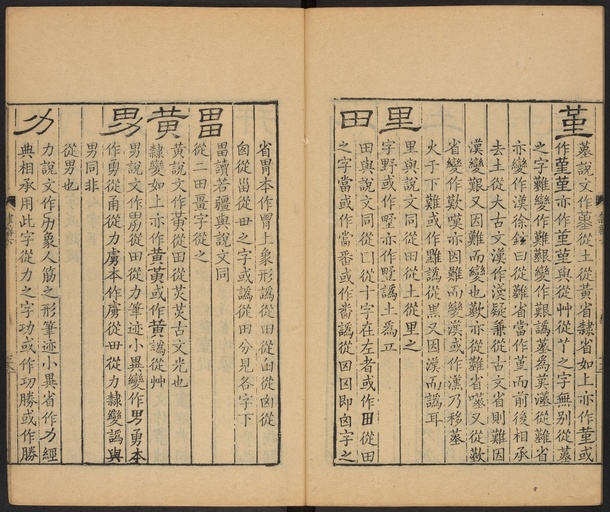 堇
墓說文作墓從土從黃省隸省如上亦作堇或
作堇堇亦作堇堇與從艸從丫之字無別從墓
之字難變作難艱變作艱譌墓為莫漢從難省
亦變作漢徐鉉曰從難省當作堇而前後相承
去土從大古文漢作漢疑兼從古文省則難因
漢變艱又因難而變也歎亦從難省嘆又從歎
省變作歎嘆亦因難而變漢或作漢乃移墓
火于下難或作難譌從黑又因漢而譌耳
里
里與說文同從田從土從里之
字野或作墅亦作野譌土為立
田
田與說文同從囗從十字在左者或作田從田
之字當或作當番或作畨譌從囟囟即囪字之
省胃本作胃上象形譌從田從甶從囟從
囪從甾從毌之字或譌從田分見各字下
畕
畕讀若疆與說文同
從二田畺字從之
黃
黃說文作黃從田從炗炗古文光也
隸變如上亦作黃黃或作黃譌從艸
男
男說文作男從田從力筆迹小異變作男勇本
作勇從甬從力虜本作虜從毌從力隸變譌與
男同非
從男也
力
力說文作力象人筋之形筆迹小異省作力經
典相承用此字從力之字功或作功勝或作勝